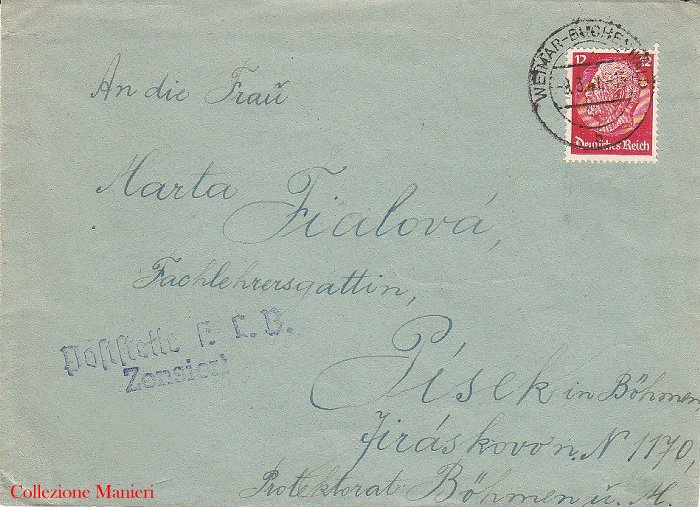 WEIMAR-BUCHENWALD
-8.3.41.
12 12
Deutsches Reich
An die Frau
Marta Fialová,
Fachlehrersgattin,
Poststelle K. L. B.
Zensiert
Písek in Böhmen
Jiráskovo n. N 1170,
Protektorat Böhmen u. M.
Collezione Manieri